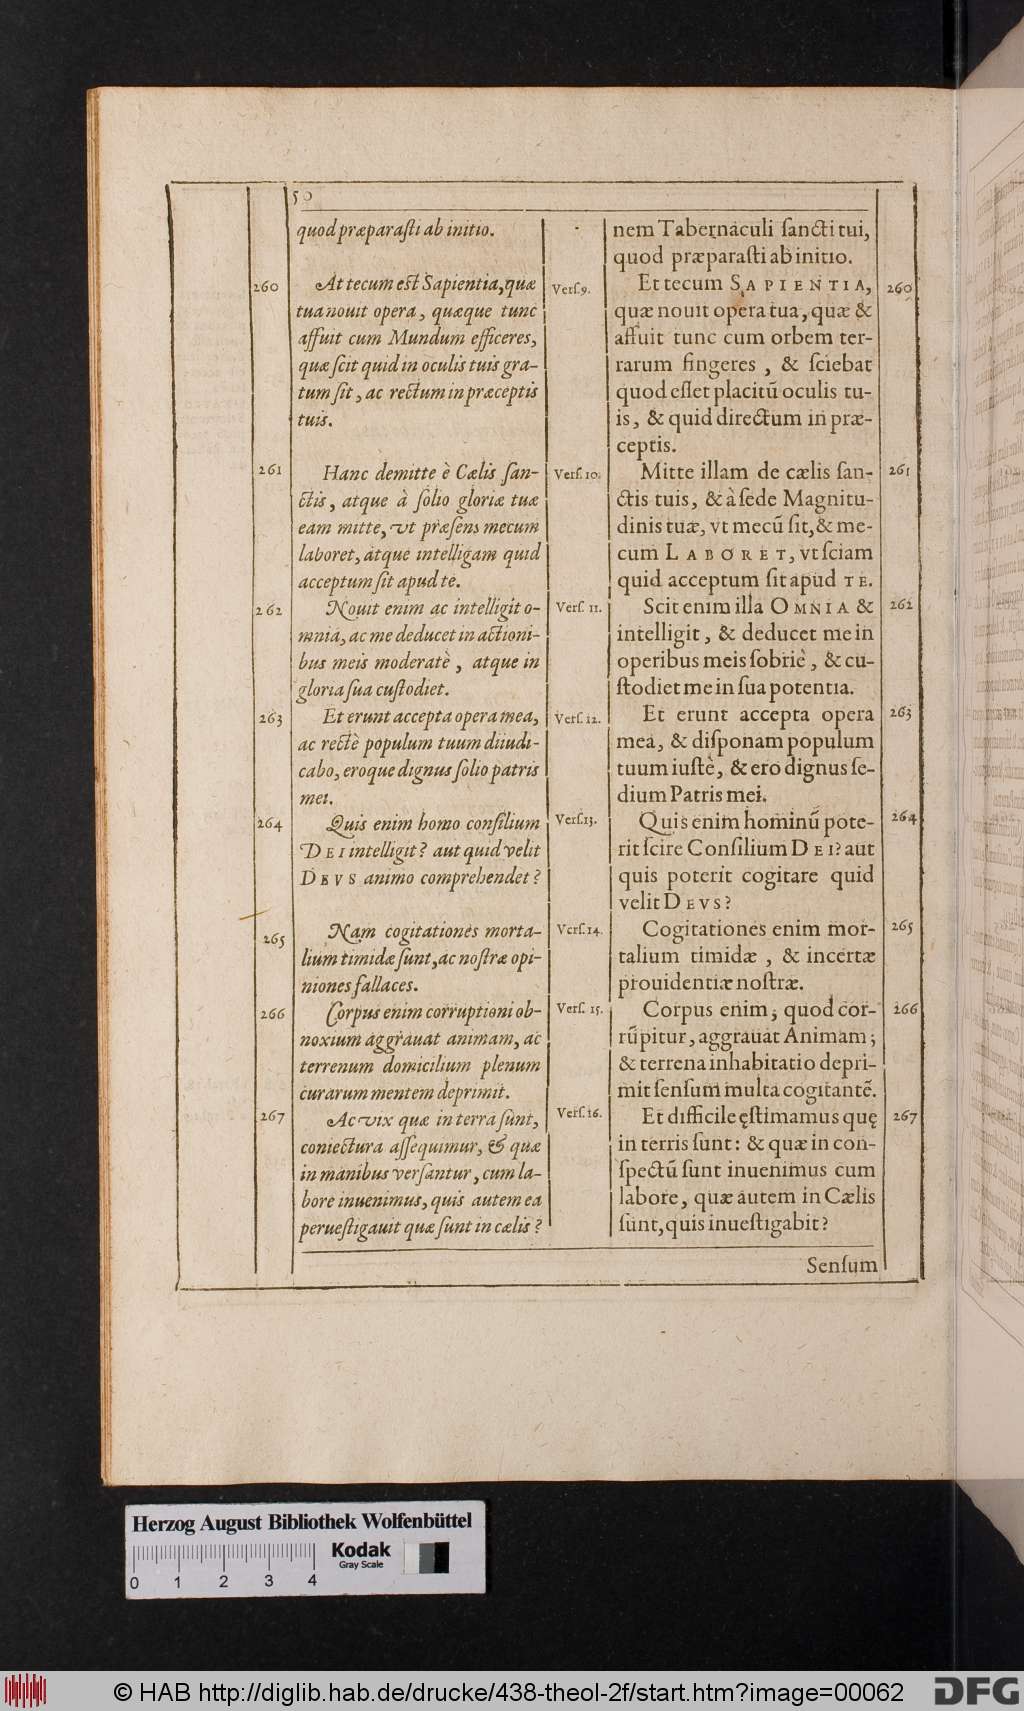 50
quod præparaſti ab initio.
260
At tecum eſt Sapientia, quæ
tua nouit opera, quæque tunc
affuit cum Mundum efficeres,
quæ ſcit quid in oculis tuis gra-
tum ſit, ac rectum in præceptis
tuis.
261
Hanc demitte è Cælis ſan-
ctis, atque à ſolio gloriæ tuæ
eam mitte, vt præſens mecum
laboret, atque intelligam quid
acceptum ſit apud te.
262
Nouit enim ac intelligit o-
mnia, ac me deducet in actioni-
bus meis moderatè, atque in
gloria ſua cuſtodiet.
263
Et erunt accepta opera mea,
ac rectè populum tuum diiudi-
cabo, eroque dignus ſolio patris
mei.
264
Quis enim homo conſilium
DEI intelligit? aut quid velit
DEVS animo comprehendet?
265
Nam cogitationes morta-
lium timidæ ſunt, ac noſtræ opi-
niones fallaces.
266
Corpus enim corruptioni ob-
noxium aggrauat animam, ac
terrenum domicilium plenum
curarum mentem deprimit.
267
Ac vix quæ in terra ſunt,
coniectura aſſequimur, & quæ
in manibus verſantur, cum la-
bore inuenimus, quis autem ea
perueſtigauit quæ ſunt in cælis?
Verſ. 9.
Verſ. 10.
Verſ. 11.
Verſ. 12.
Verſ. 13.
Verſ. 14.
Verſ. 15.
Verſ. 16.
nem Tabernaculi ſancti tui,
quod præparaſti ab initio.
Et tecum SAPIENTIA,
260
quæ nouit opera tua, quæ &
affuit tunc cum orbem ter-
rarum fingeres, & ſciebat
quod eſſet placitū oculis tu-
is, & quid directum in præ-
ceptis.
Mitte illam de cælis ſan-
261
ctis tuis, & à ſede Magnitu-
dinis tuæ, vt mecū ſit, & me-
cum LABORET, vt ſciam
quid acceptum ſit apud TE.
Scit enim illa OMNIA &
262
intelligit, & deducet me in
operibus meis ſobriè, & cu-
ſtodiet me in ſua potentia.
Et erunt accepta opera
263
mea, & diſponam populum
tuum iuſtè, & ero dignus ſe-
dium Patris mei.
Quis enim hominū pote-
264
rit ſcire Conſilium DEI? aut
quis poterit cogitare quid
velit DEVS?
Cogitationes enim mor-
265
talium timidæ, & incertæ
prouidentiæ noſtræ.
Corpus enim, quod cor-
266
rūpitur, aggrauat Animam;
& terrena inhabitatio depri-
mit ſenſum multa cogitantē.
Et difficile ęſtimamus quę
267
in terris ſunt: & quæ in con-
ſpectū ſunt inuenimus cum
labore, quæ autem in Cælis
ſunt, quis inueſtigabit?
Senſum
Herzog August Bibliothek Wolfenbüttel
Kodak
Gray Scale
0 1 2 3 4
© HAB http://diglib.hab.de/drucke/438-theol-2f/start.htm?image=00062
DFG